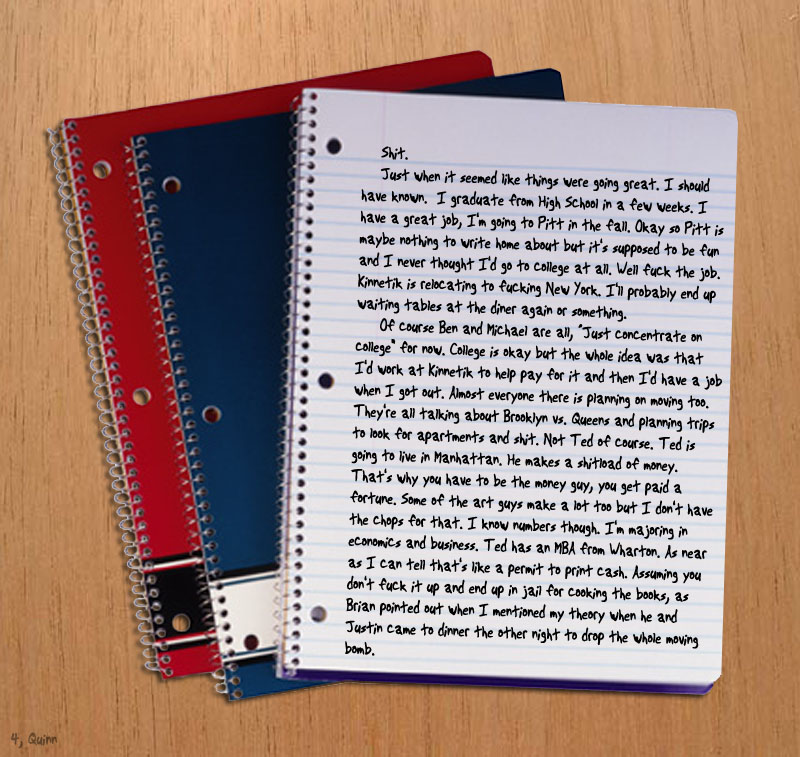 Shit.
Just when it seemed like things were going great. I should
have known. I graduate from High School in a few weeks. I
have a great job, I'm going to Pitt in the fall. Okay so Pitt is
maybe nothing to write home about but it's supposed to be fun
and I never thought I'd go to college at all. Well fuck the job.
Kinnetik is relocating to fucking New York. I'll probably end up
waiting tables at the diner again or something.
Of course Ben and Michael are all, "Just concentrate on
college" for now. College is okay but the whole idea was that
I'd work at Kinnetik to help pay for it and then I'd have a job
when I got out. Almost everyone there is planning on moving too.
They're all talking about Brooklyn vs. Queens and planning trips
to look for apartments and shit. Not Ted of course. Ted is
going to live in Manhattan. He makes a shitload of money.
That's why you have to be the money guy, you get paid a
fortune. Some of the art guys make a lot too but I don't have
the chops for that. I know numbers though. I'm majoring in
economics and business. Ted has an MBA from Wharton. As near
as I can tell that's like a permit to print cash. Assuming you
don't fuck it up and end up in jail for cooking the books, as
Brian pointed out when I mentioned my theory when he and
Justin came to dinner the other night to drop the whole moving
bomb.
4, Quinn